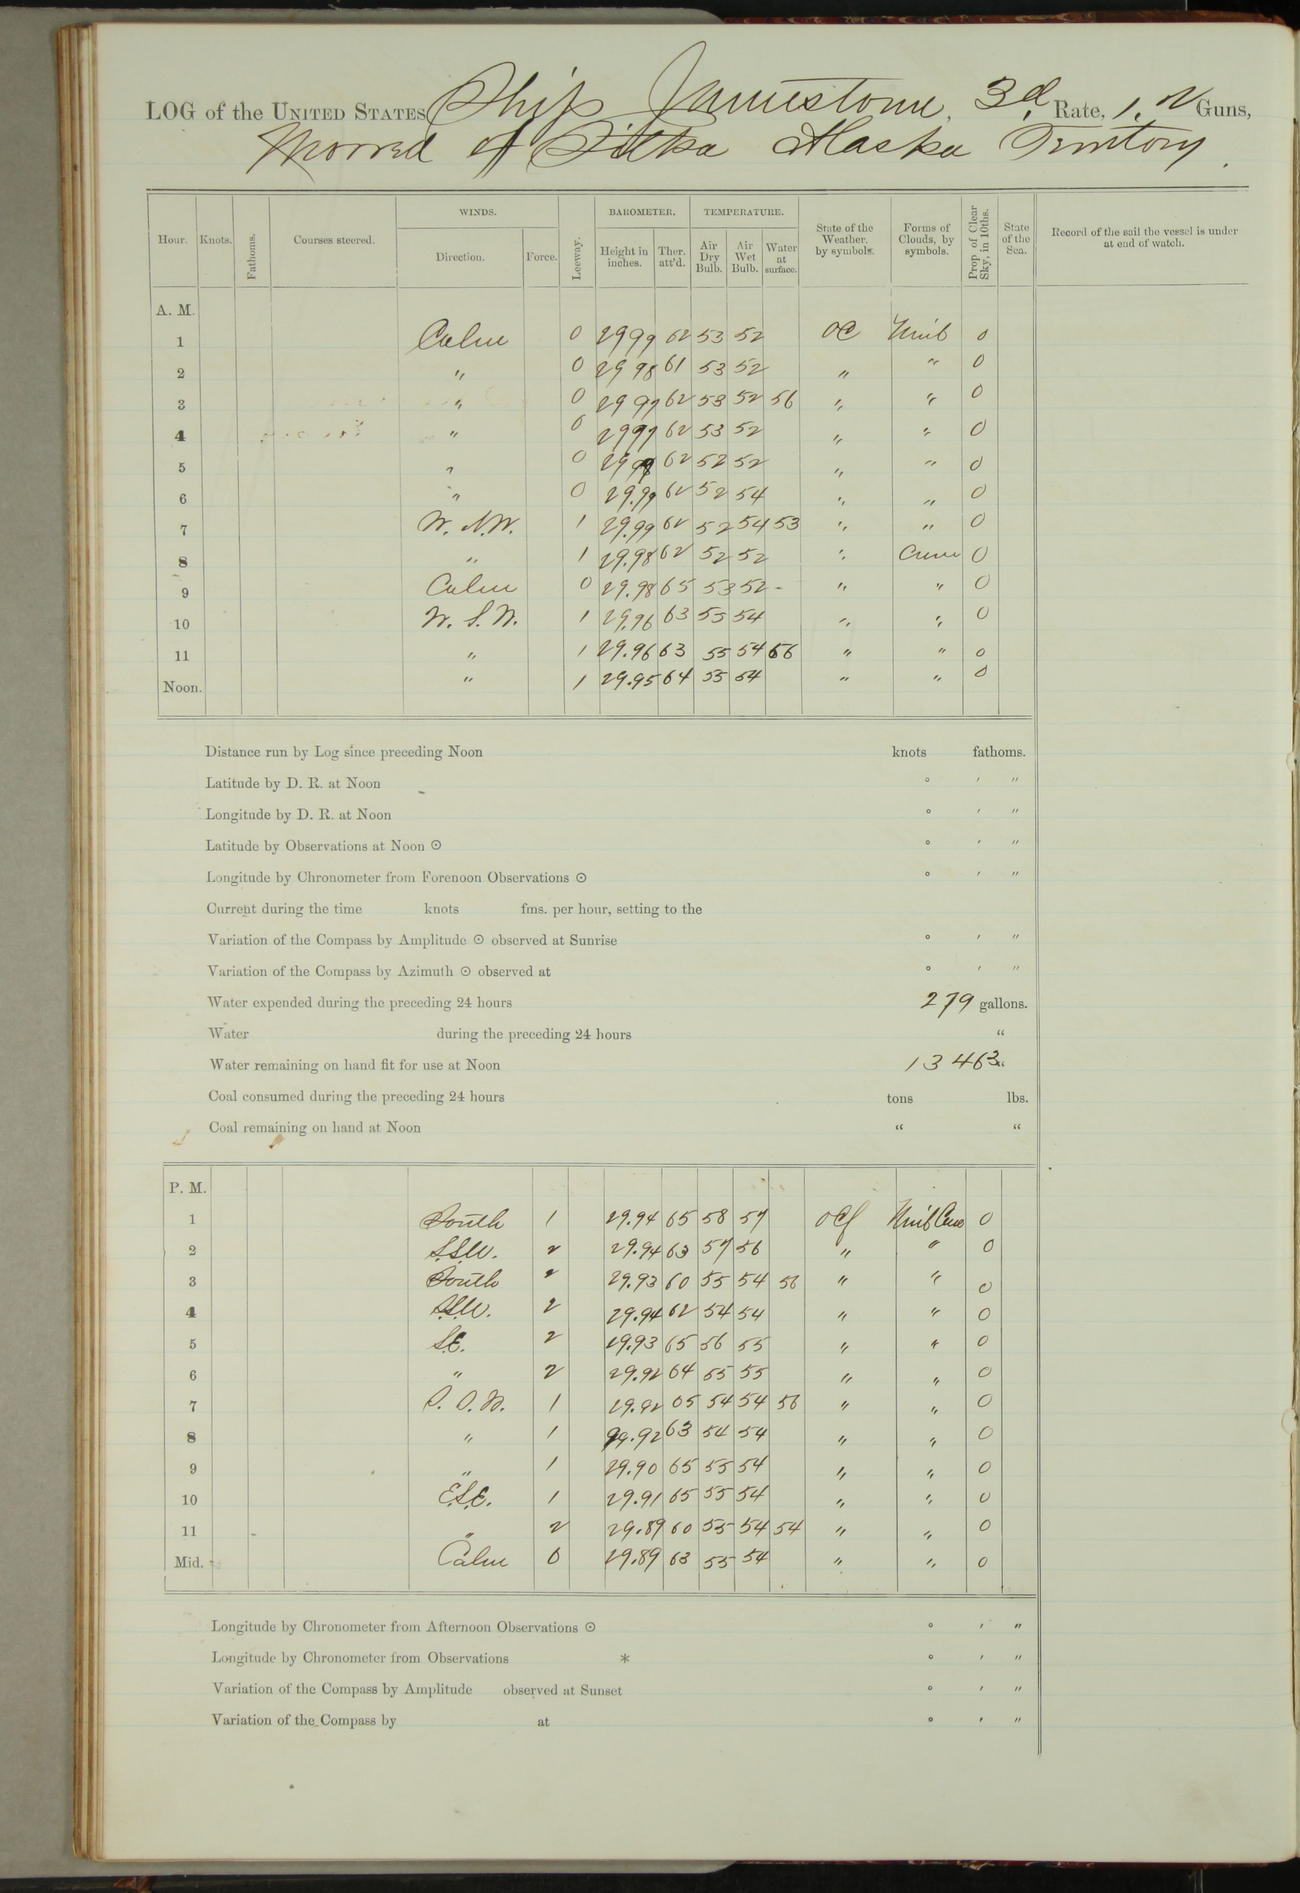 LOG of the UNITED STATES Ship Jamestown, 3d Rate, 12 Guns,
Moored of Sitka Alaska Territory.
Hour. Knots. Fathoms. Courses steered. WINDS. Direction. Force. Leeway. BAROMETER. Height in inches. Ther. att'd. TEMPERATURE. Air Dry Bulb. Air Wet Bulb. Water at surface. State of the Weather, by symbols. Forms of Clouds, by symbols. Prop. of Clear Sky, in 10ths. State of the Sea. Record of the sail the vessel is under at end of watch.
A. M.
1 Calm 0 29 99 62 53 52 OC Nimb 0
2 " 0 29 98 61 53 52 " " 0
3 " 0 29 97 62 53 52 56 " " 0
4 " 0 29 97 62 53 52 " " 0
5 " 0 62 52 52 " " 0
6 " 0 29.99 62 52 54 " " 0
7 W. N.W. 1 29.99 62 52 54 53 " " 0
8 " 1 29.98 62 52 52 " Cum 0
9 Calm 0 29.98 65 53 52 - " " 0
10 W. S. W. 1 29.96 63 55 54 " " 0
11 " 1 29.96 63 55 54 56 " " 0
Noon. " 1 29.95 64 55 54 " " 0
Distance run by Log since preceding Noon knots fathoms.
Latitude by D. R. at Noon ° ′ ″
Longitude by D. R. at Noon ° ′ ″
Latitude by Observations at Noon ☉ ° ′ ″
Longitude by Chronometer from Forenoon Observations ☉ ° ′ ″
Current during the time knots fms. per hour, setting to the
Variation of the Compass by Amplitude ☉ observed at Sunrise ° ′ ″
Variation of the Compass by Azimuth ☉ observed at ° ′ ″
Water expended during the preceding 24 hours 279 gallons.
Water during the preceding 24 hours “
Water remaining on hand fit for use at Noon 13 463 “
Coal consumed during the preceding 24 hours tons lbs.
Coal remaining on hand at Noon “ “
P. M.
1 South 1 29.94 65 58 57 OCf Nimb Cum 0
2 S.S.W. 2 29.94 63 57 56 " " 0
3 South 2 29.93 60 55 54 56 " " 0
4 2 29.94 62 54 54 " " 0
5 S.E. 2 29.93 65 56 55 " " 0
6 " 2 29.92 64 55 55 " " 0
7 1 29.92 65 54 54 56 " " 0
8 " 1 29.92 63 54 54 " " 0
9 " 1 29.90 65 55 54 " " 0
10 E.S.E. 1 29.91 65 55 54 " " 0
11 " 2 29.89 60 55 54 54 " " 0
Mid. Calm 0 29.89 63 55 54 " " 0
Longitude by Chronometer from Afternoon Observations ☉ ° ′ ″
Longitude by Chronometer from Observations * ° ′ ″
Variation of the Compass by Amplitude observed at Sunset ° ′ ″
Variation of the Compass by at ° ′ ″